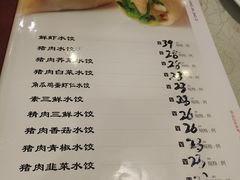 鲜虾水饺 39
猪肉水饺 28
猪肉荠菜水饺 28
猪肉白菜水饺 23
角瓜鸡蛋虾仁水饺 26
素三鲜水饺 23
精肉三鲜水饺 26
猪肉香菇水饺 26
猪肉青椒水饺 23
猪肉韭菜水饺 23